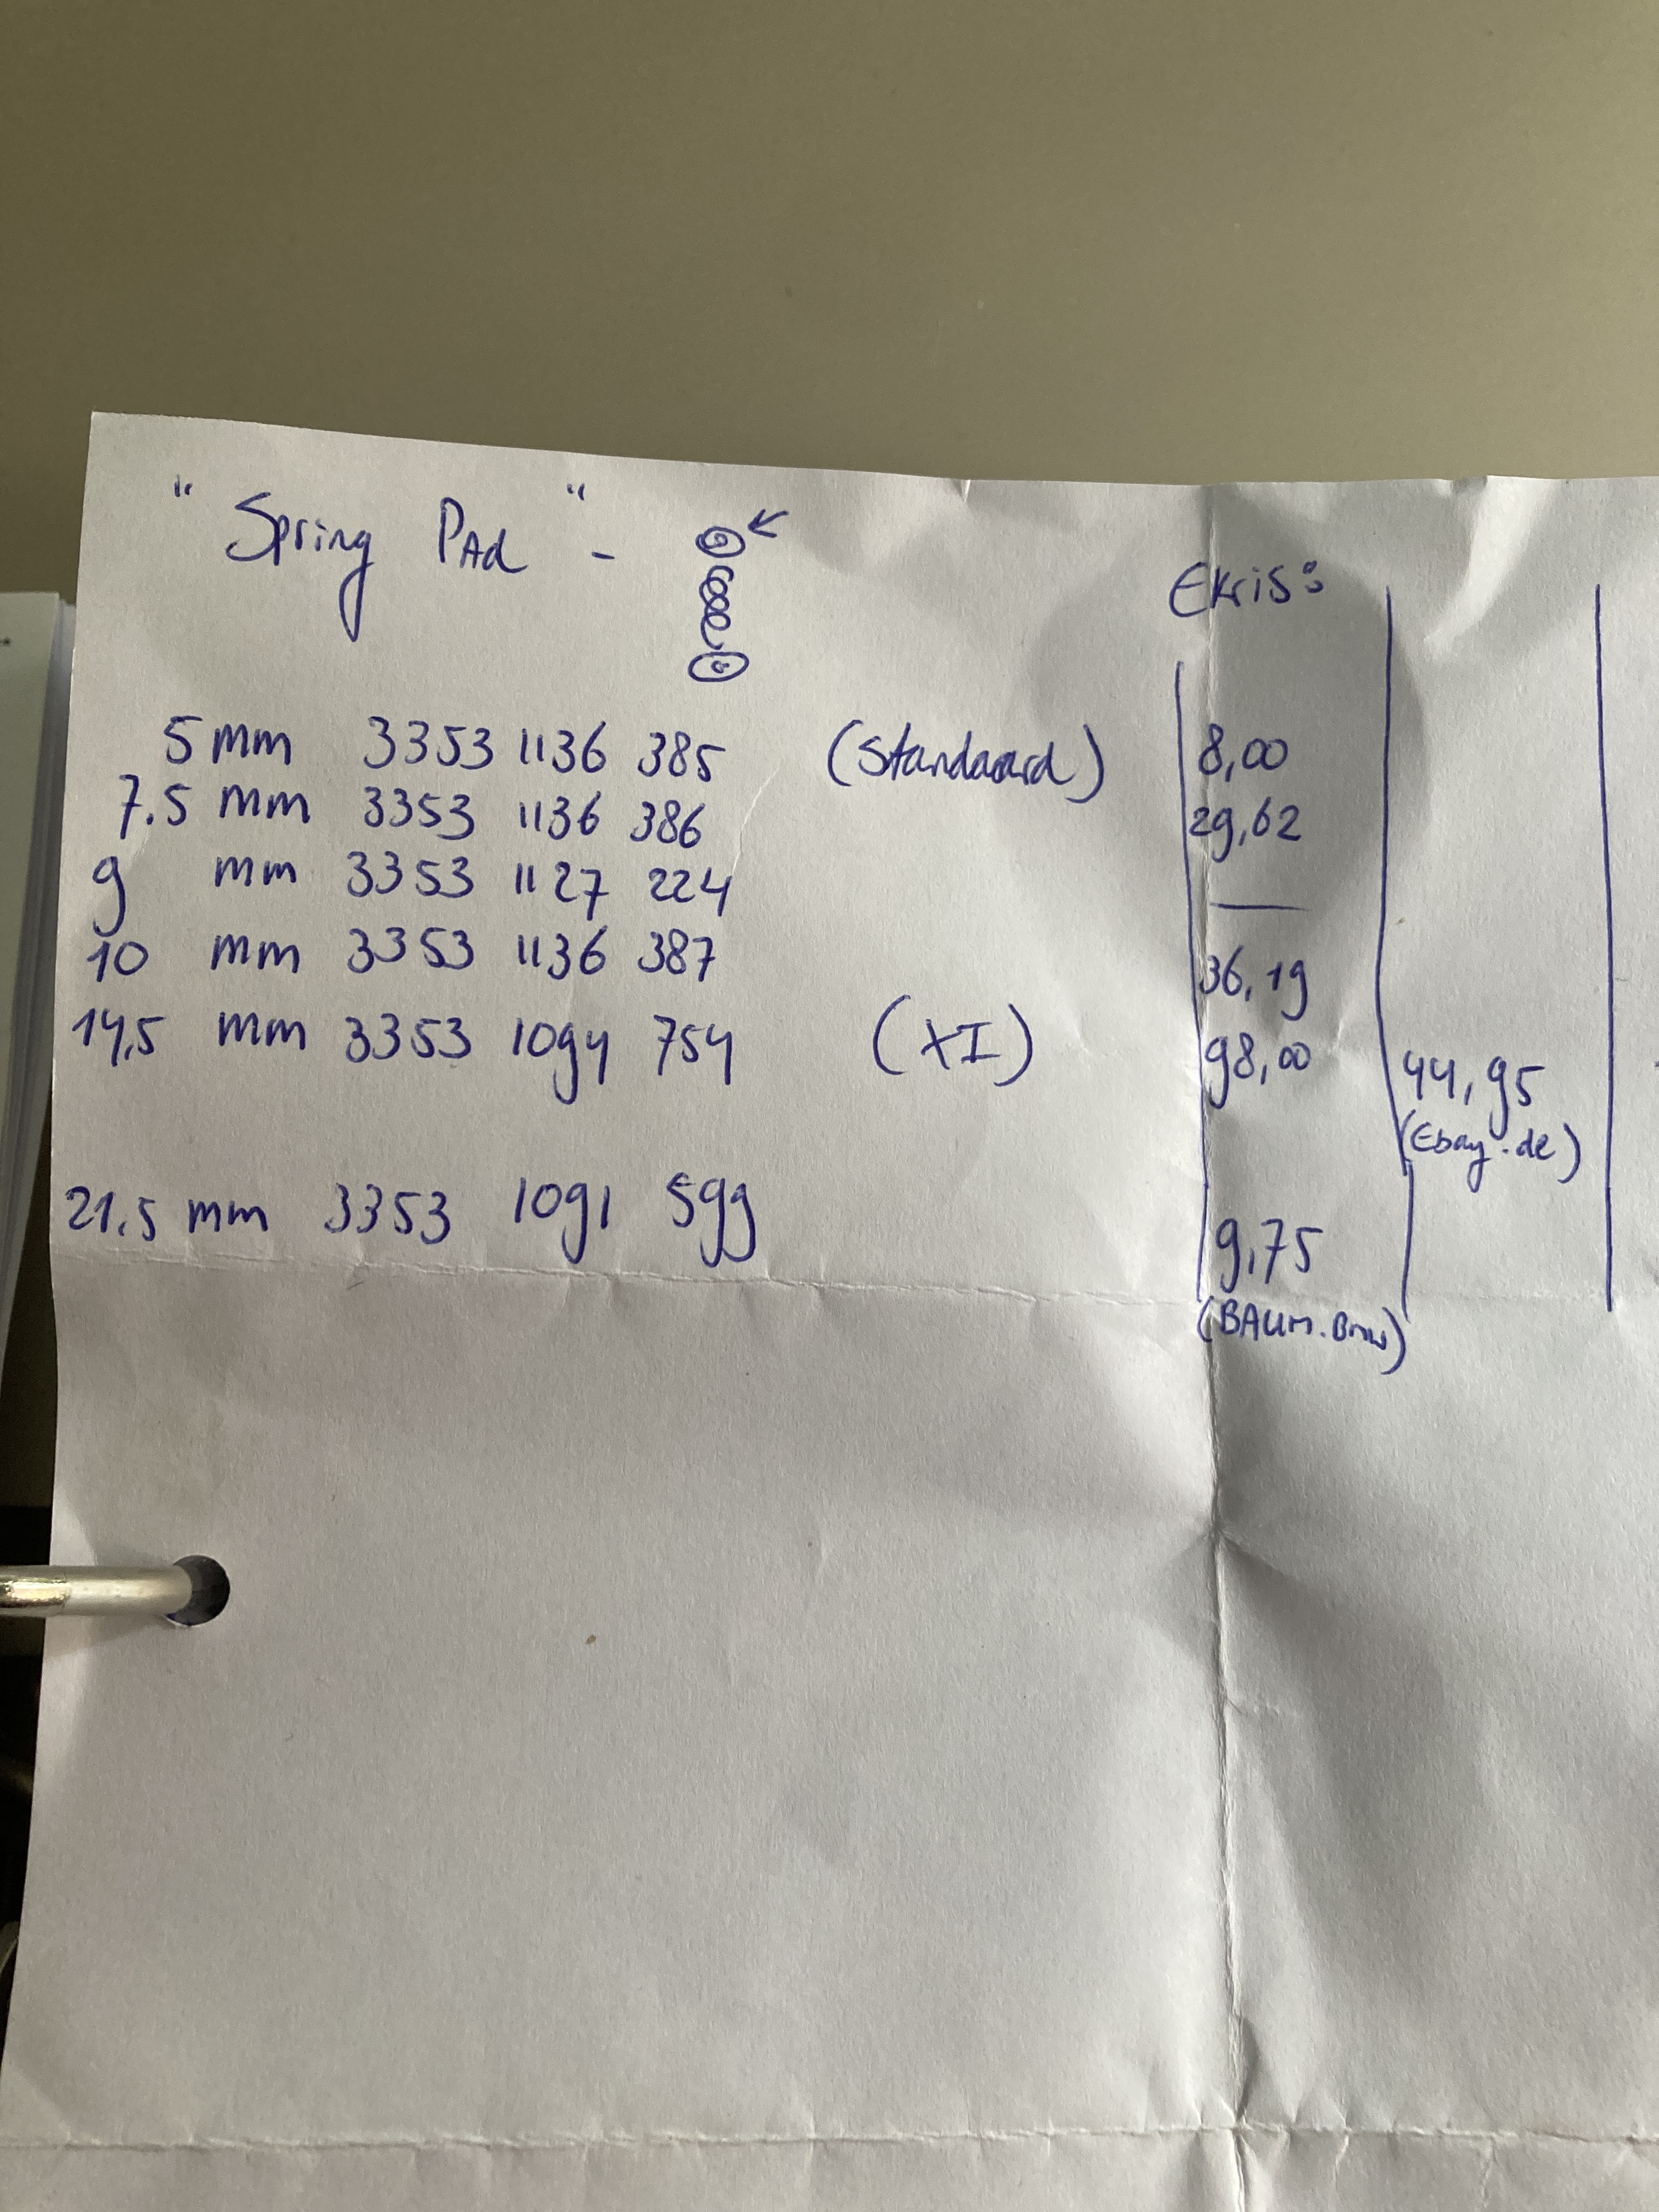 "Spring PAd" -
Ekris:
5 mm 3353 1136 385 (Standaard) 8,00
7.5 mm 3353 1136 386 29,62
9 mm 3353 1127 224 —
10 mm 3353 1136 387 36,19
14,5 mm 3353 1094 754 (XI) 98,00 44,95
(Ebay.de)
21.5 mm 3353 1091 599 9,75
(BAUM.Bmw)